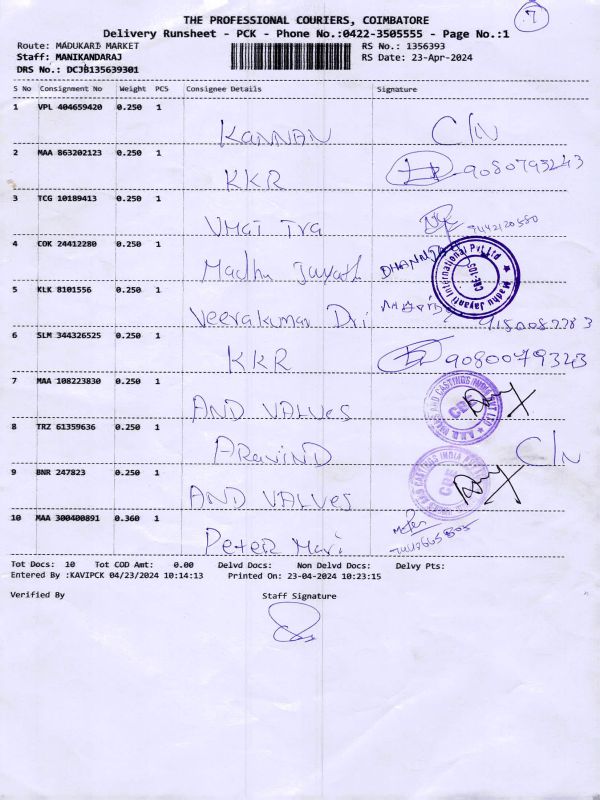 7
THE PROFESSIONAL COURIERS, COIMBATORE
Delivery Runsheet - PCK - Phone No.:0422-3505555 - Page No.:1
Route: MADUKARI MARKET RS No.: 1356393
Staff: MANIKANDARAJ RS Date: 23-Apr-2024
DRS No.: DCJB135639301
S No Consignment No Weight PCS Consignee Details Signature
1 VPL 404659420 0.250 1
KANNAN C/N
2 MAA 863202123 0.250 1
KKR 9080793243
3 TCG 10189413 0.250 1
4 COK 24412280 0.250 1
Madhu Jayath
Madhu Jayanti International Pvt Ltd
5 KLK 8101556 0.250 1
Veerakumar Dri
6 SLM 344326525 0.250 1
KKR 9080079323
7 MAA 108223830 0.250 1
AND VALVES
8 TRZ 61359636 0.250 1
ARAVIND C/N
9 BNR 247823 0.250 1
AND VALVES
10 MAA 300400891 0.360 1
Peter Mari
Tot Docs: 10 Tot COD Amt: 0.00 Delvd Docs: Non Delvd Docs: Delvy Pts:
Entered By :KAVIPCK 04/23/2024 10:14:13 Printed On: 23-04-2024 10:23:15
Verified By Staff Signature